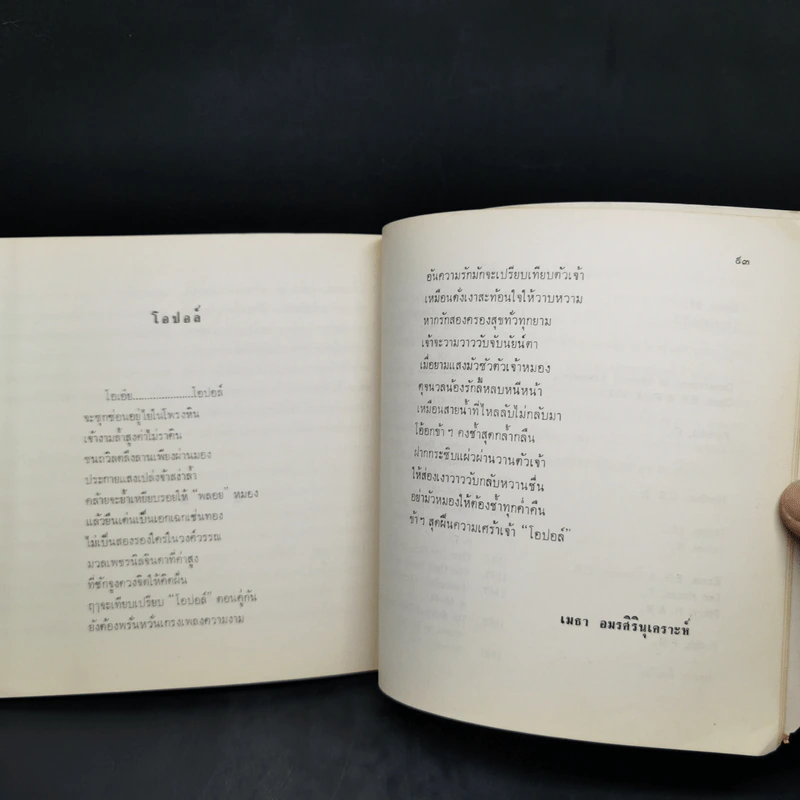 โอปอล์
โอเอ๋ย..................โอปอล์
จะซุกซ่อนอยู่ไยในโพรงหิน
เจ้างามล้ำสูงค่าไม่ราคิน
ชนถวิลตลึงลานเพียงผ่านมอง
ประกายแสงเปล่งจ้าสง่าล้ำ
คล้ายจะย้ำเหยียบรอยให้ "พลอย" หมอง
แล้วยืนเด่นเป็นเอกเฉกเช่นทอง
ไม่เป็นสองรองใครในวงศ์วรรณ
มวลเพชรนิลจินดาที่ค่าสูง
ที่ชักจูงดวงจิตให้คิดฝัน
ฤาจะเทียบเปรียบ"โอปอล์" ตอนคู่กัน
ยังต้องพรั่นหวั่นเกรงเพลงความงาม
๕๓
อันความรักมักจะเปรียบเทียบตัวเจ้า
เหมือนดั่งเงาสะท้อนใจให้วาบหวาม
หากรักสองครองสุขทั่วทุกยาม
เจ้าจะวามวาววับจับนัยน์ตา
เมื่อยามแสงมัวซัวตัวเจ้าหมอง
ดุจนวลน้องรักลี้หลบหนีหน้า
เหมือนสายน้ำที่ไหลลับไม่กลับมา
โอ้อกข้า ฯ คงช้ำสุดกล้ำกลืน
ฝากกระซิบแผ่วผ่านวานตัวเจ้า
ให้ส่องเงาวาววับกลับหวานชื่น
อย่ามัวหมองให้ต้องช้ำทุกค่ำคืน
ข้า ฯ สุดฝืนความเศร้าเจ้า "โอปอล์"
เมธา อมรศิรินุเคราะห์